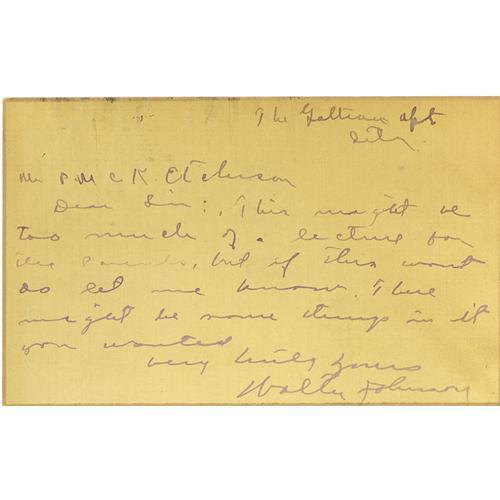 The apt
City.
Mr P. McK. Etchison
Dear Sir:, This might be
too much of a lecture for
the , but if this wont
do let me know. There
might be some things in it
you wanted
very truly yours
Walter Johnson